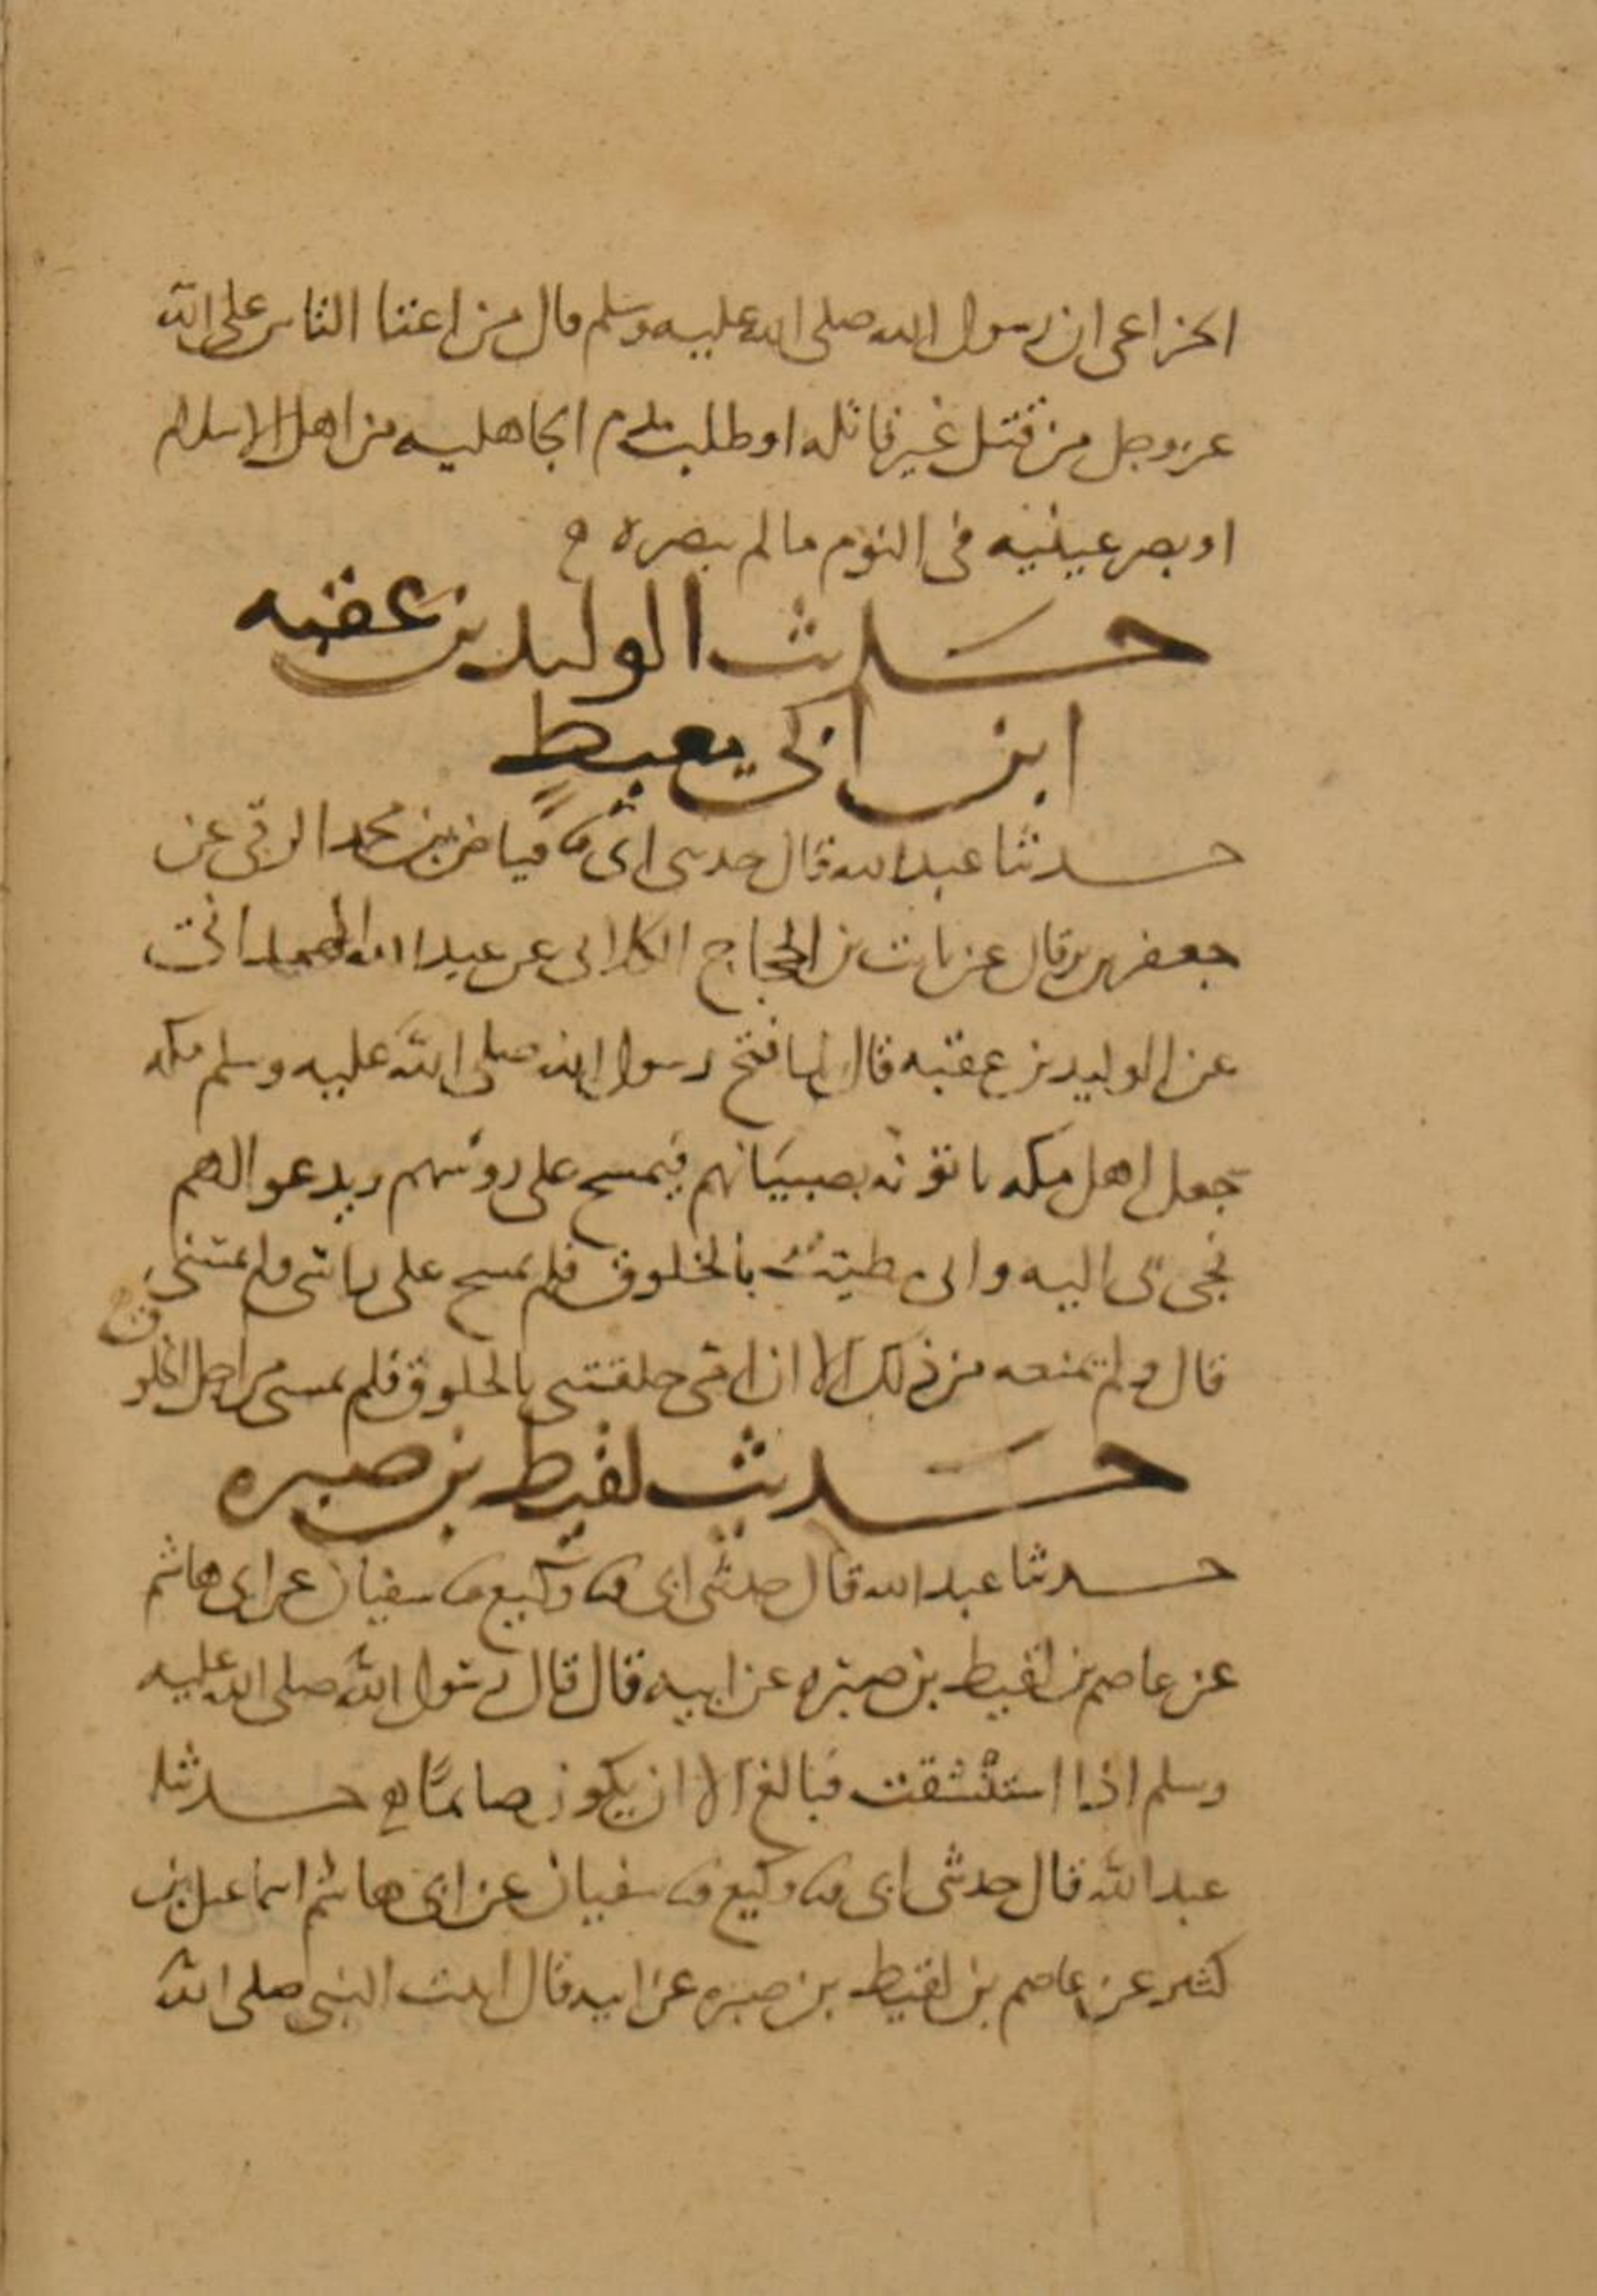 الخزاعي ان رسول الله صلى الله عليه وسلم قال من اعتا الناس على الله
عز وجل من قتل غير قاتله او طلب بدم الجاهليه من اهل الاسلام
او بصر عينيه في النوم ما لم يبصره
حديث الوليد بن عقبه
ابن ابي معيط
حدثنا عبد الله قال حدثني ابي ثنا فياض بن محمد الرقي عن
جعفر بن برقان عن ثابت بن الحجاج الكلابي عن عبد الله الهمداني
عن الوليد بن عقبه قال لما فتح رسول الله صلى الله عليه وسلم مكه
جعل اهل مكه ياتونه بصبيانهم فيمسح على روسهم ويدعوا لهم
فجي بي اليه واني مطيب بالخلوق فلم يمسح على راسي
قال ولم يمنعه من ذلك الا ان امي خلقتني بالخلوق فلم يمسني من اجل الخلوق
حديث لقيط بن صبره
حدثنا عبد الله قال حدثني ابي ثنا وكيع ثنا سفيان عن ابي هاشم
عن عاصم بن لقيط بن صبره عن ابيه قال قال رسول الله صلى الله عليه
وسلم اذا استنشقت فبالغ الا ان يكون صائمًا حدثنا
عبد الله قال حدثني ابي ثنا وكيع ثنا سفيان عن ابي هاشم اسماعيل بن
كثير عن عاصم بن لقيط بن صبره عن ابيه قال اتيت النبي صلى الله